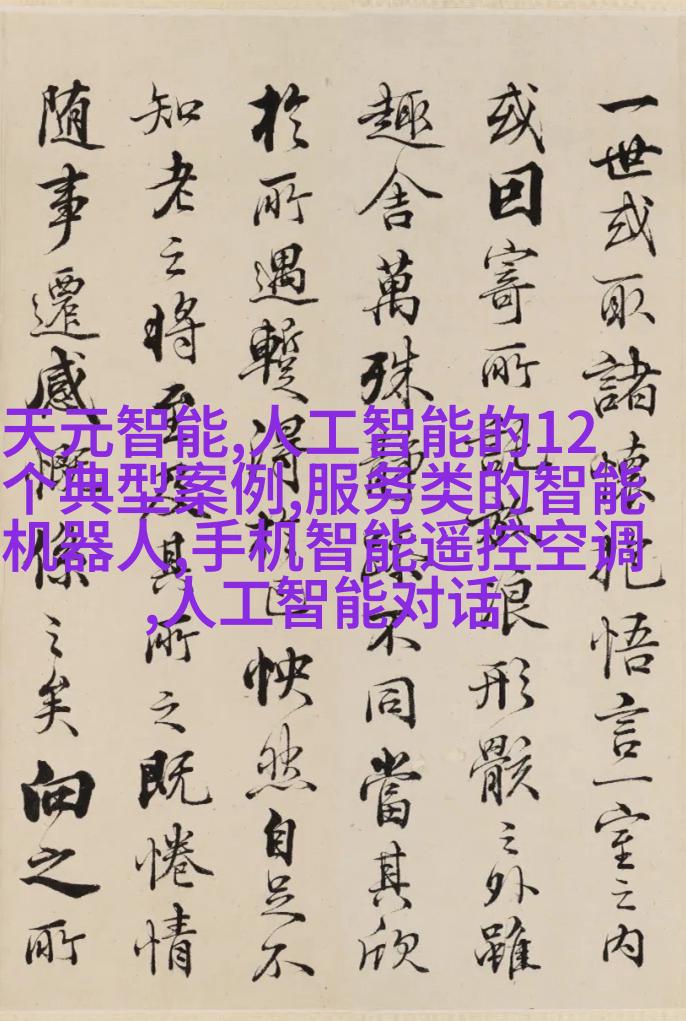 一世或取諸懷抱悟言一室之内
或因寄所託放浪形骸之外雖
趣舍萬殊靜躁不同當其欣
於所遇蹔得於己怏然自足不
知老之將至及其所之既惓情
随事遷感慨係之矣向之所
天元智能,人工智能的12
个典型案例,服务类的智能
机器人,手机智能遥控空调
,人工智能对话